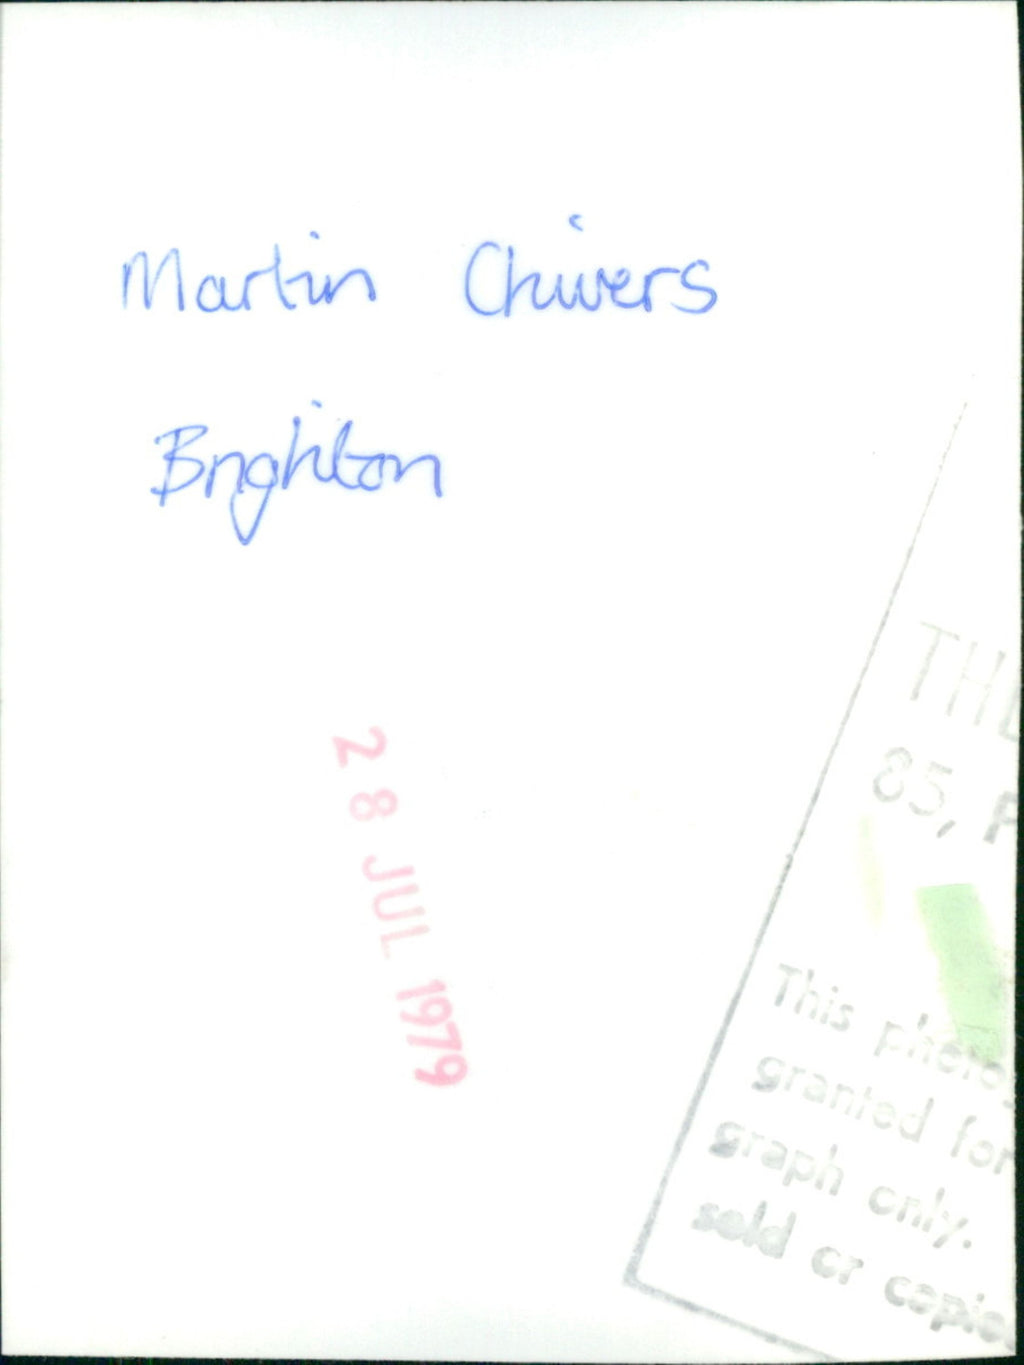 Martin Chivers
Brighton
28 JUL 1979
THE
85,
This
granted for
graph only.
sold or